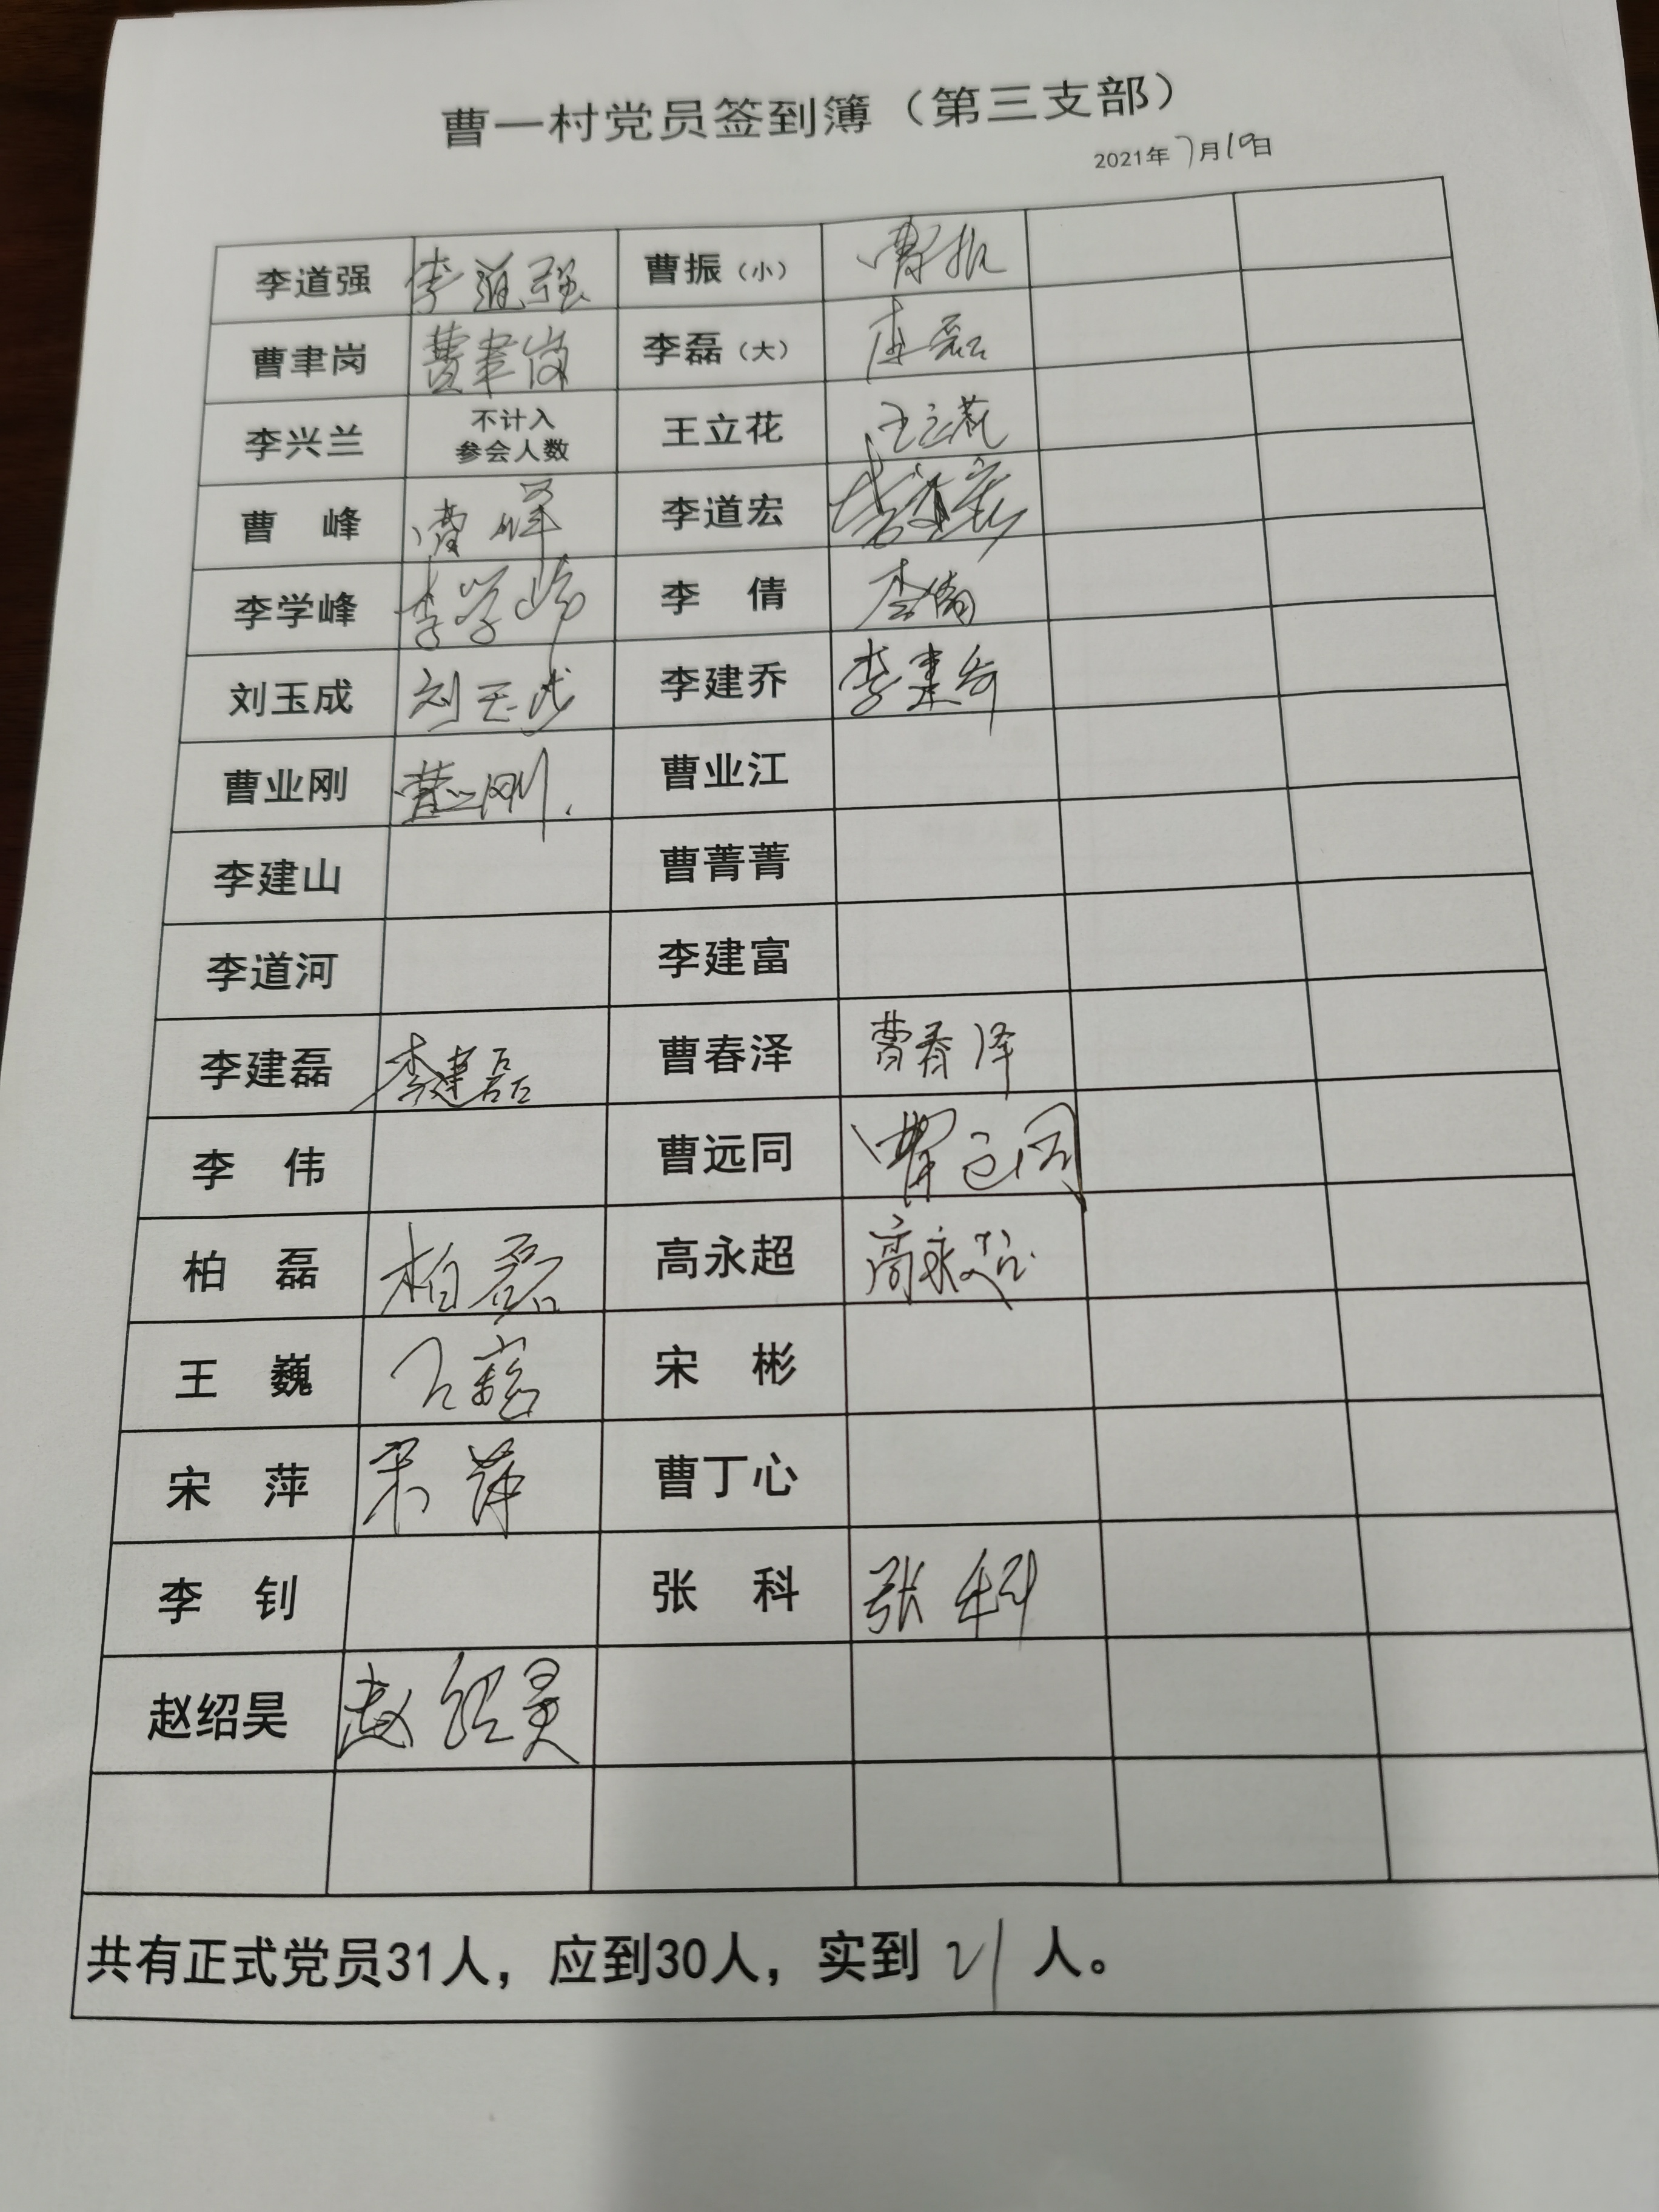 曹一村党员签到簿（第三支部）
2021年7月10日
李道强 李道强 曹振（小） 曹振
曹聿岗 曹聿岗 李磊（大） 李磊
李兴兰 不计入 参会人数 王立花 王立花
曹 峰 曹峰 李道宏 李道宏
李学峰 李学峰 李 倩 李倩
刘玉成 刘玉成 李建乔 李建乔
曹业刚 曹业刚 曹业江
李建山 曹菁菁
李道河 李建富
李建磊 李建磊 曹春泽 曹春泽
李 伟 曹远同 曹远同
柏 磊 柏磊 高永超 高永超
王 巍 王巍 宋 彬
宋 萍 宋萍 曹丁心
李 钊 张 科 张科
赵绍昊 赵绍昊
共有正式党员31人，应到30人，实到 21 人。